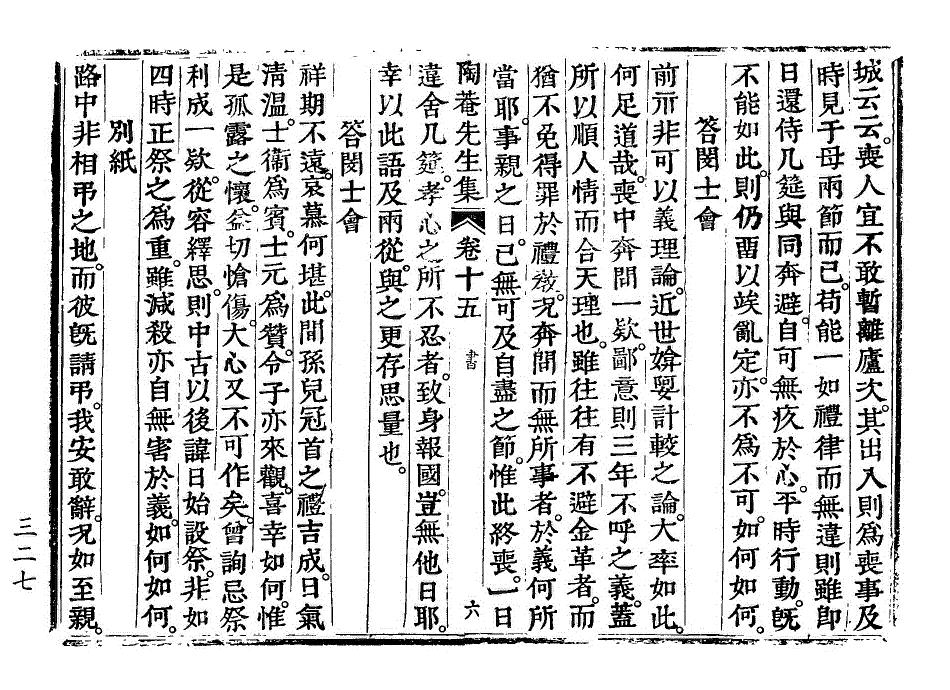 城云云。喪人宜不敢暫離廬次。其出入則爲喪事及
時見于母兩節而已。苟能一如禮律而無違則雖卽
日還侍几筵與同奔避。自可無疚於心。平時行動。旣
不能如此。則仍畱以竢亂定。亦不爲不可。如何如何。
答閔士會
前示非可以義理論。近世媕娿計較之論。大率如此。
何足道哉。喪中奔問一欵。鄙意則三年不呼之義。蓋
所以順人情而合天理也。雖往往有不避金革者。而
猶不免得罪於禮敎。况奔問而無所事者。於義何所
當耶。事親之日。已無可及自盡之節。惟此終喪。一日
陶菴先生集 卷十五 書 六
違舍几筵。孝心之所不忍者。致身報國。豈無他日耶。
幸以此語及兩從。與之更存思量也。
答閔士會
祥期不遠。哀慕何堪。此間孫兒冠首之禮吉成。日氣
淸溫。士衞爲賓。士元爲贊。令子亦來觀。喜幸如何。惟
是孤露之懷。益切愴傷。大心又不可作矣。曾詢忌祭
利成一欵。從容繹思。則中古以後諱日始設祭。非如
四時正祭之爲重。雖減殺亦自無害於義。如何如何。
別紙
路中非相弔之地。而彼旣請弔。我安敢辭。况如至親。
三二七